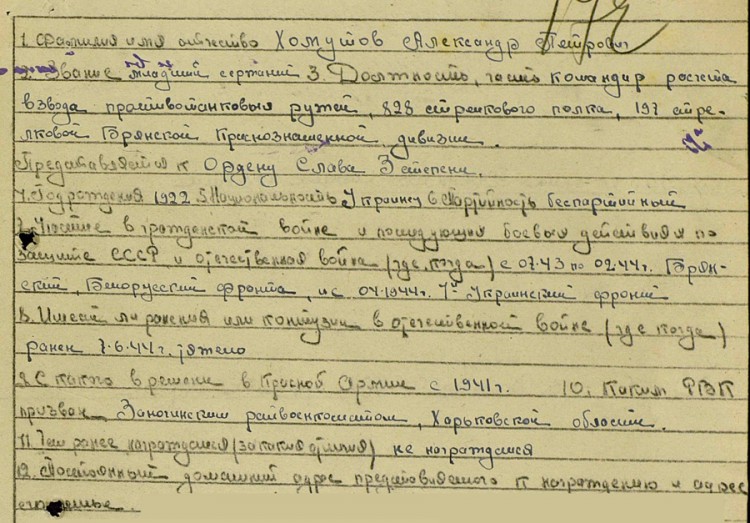 1. Фамилия имя отчество Хомутов Александр Петрович
2. Звание младший сержант 3. Должность, часть командир расчета
взвода противотанковых ружей, 828 стрелкового полка, 197 стре-
лковой Брянской Краснознаменной дивизии.
Представляется к Ордену Слава 3 степени.
4. Год рождения 1922 5. Национальность Украинец 6 Партийность беспартийный
7. Участие в гражданской войне и последующих боевых действиях по
защите СССР и отечественная война (где, когда) с 07.43 по 02.44 г. Брян-
ский, Белорусский фронта, и с 04.1944 г. 1й Украинский фронт
8. Имеет ли ранения или контузии в отечественной войне (где когда)
ранен 7.6.44 г. тяжело
9. С какого времени в Красной Армии с 1941 г. 10. Каким РВК
призван райвоенкоматом, Харьковской области.
11. Чем ранее награждался (за какие отличия) не награждался
12. Постоянный домашний адрес представляемого к награждению и адрес